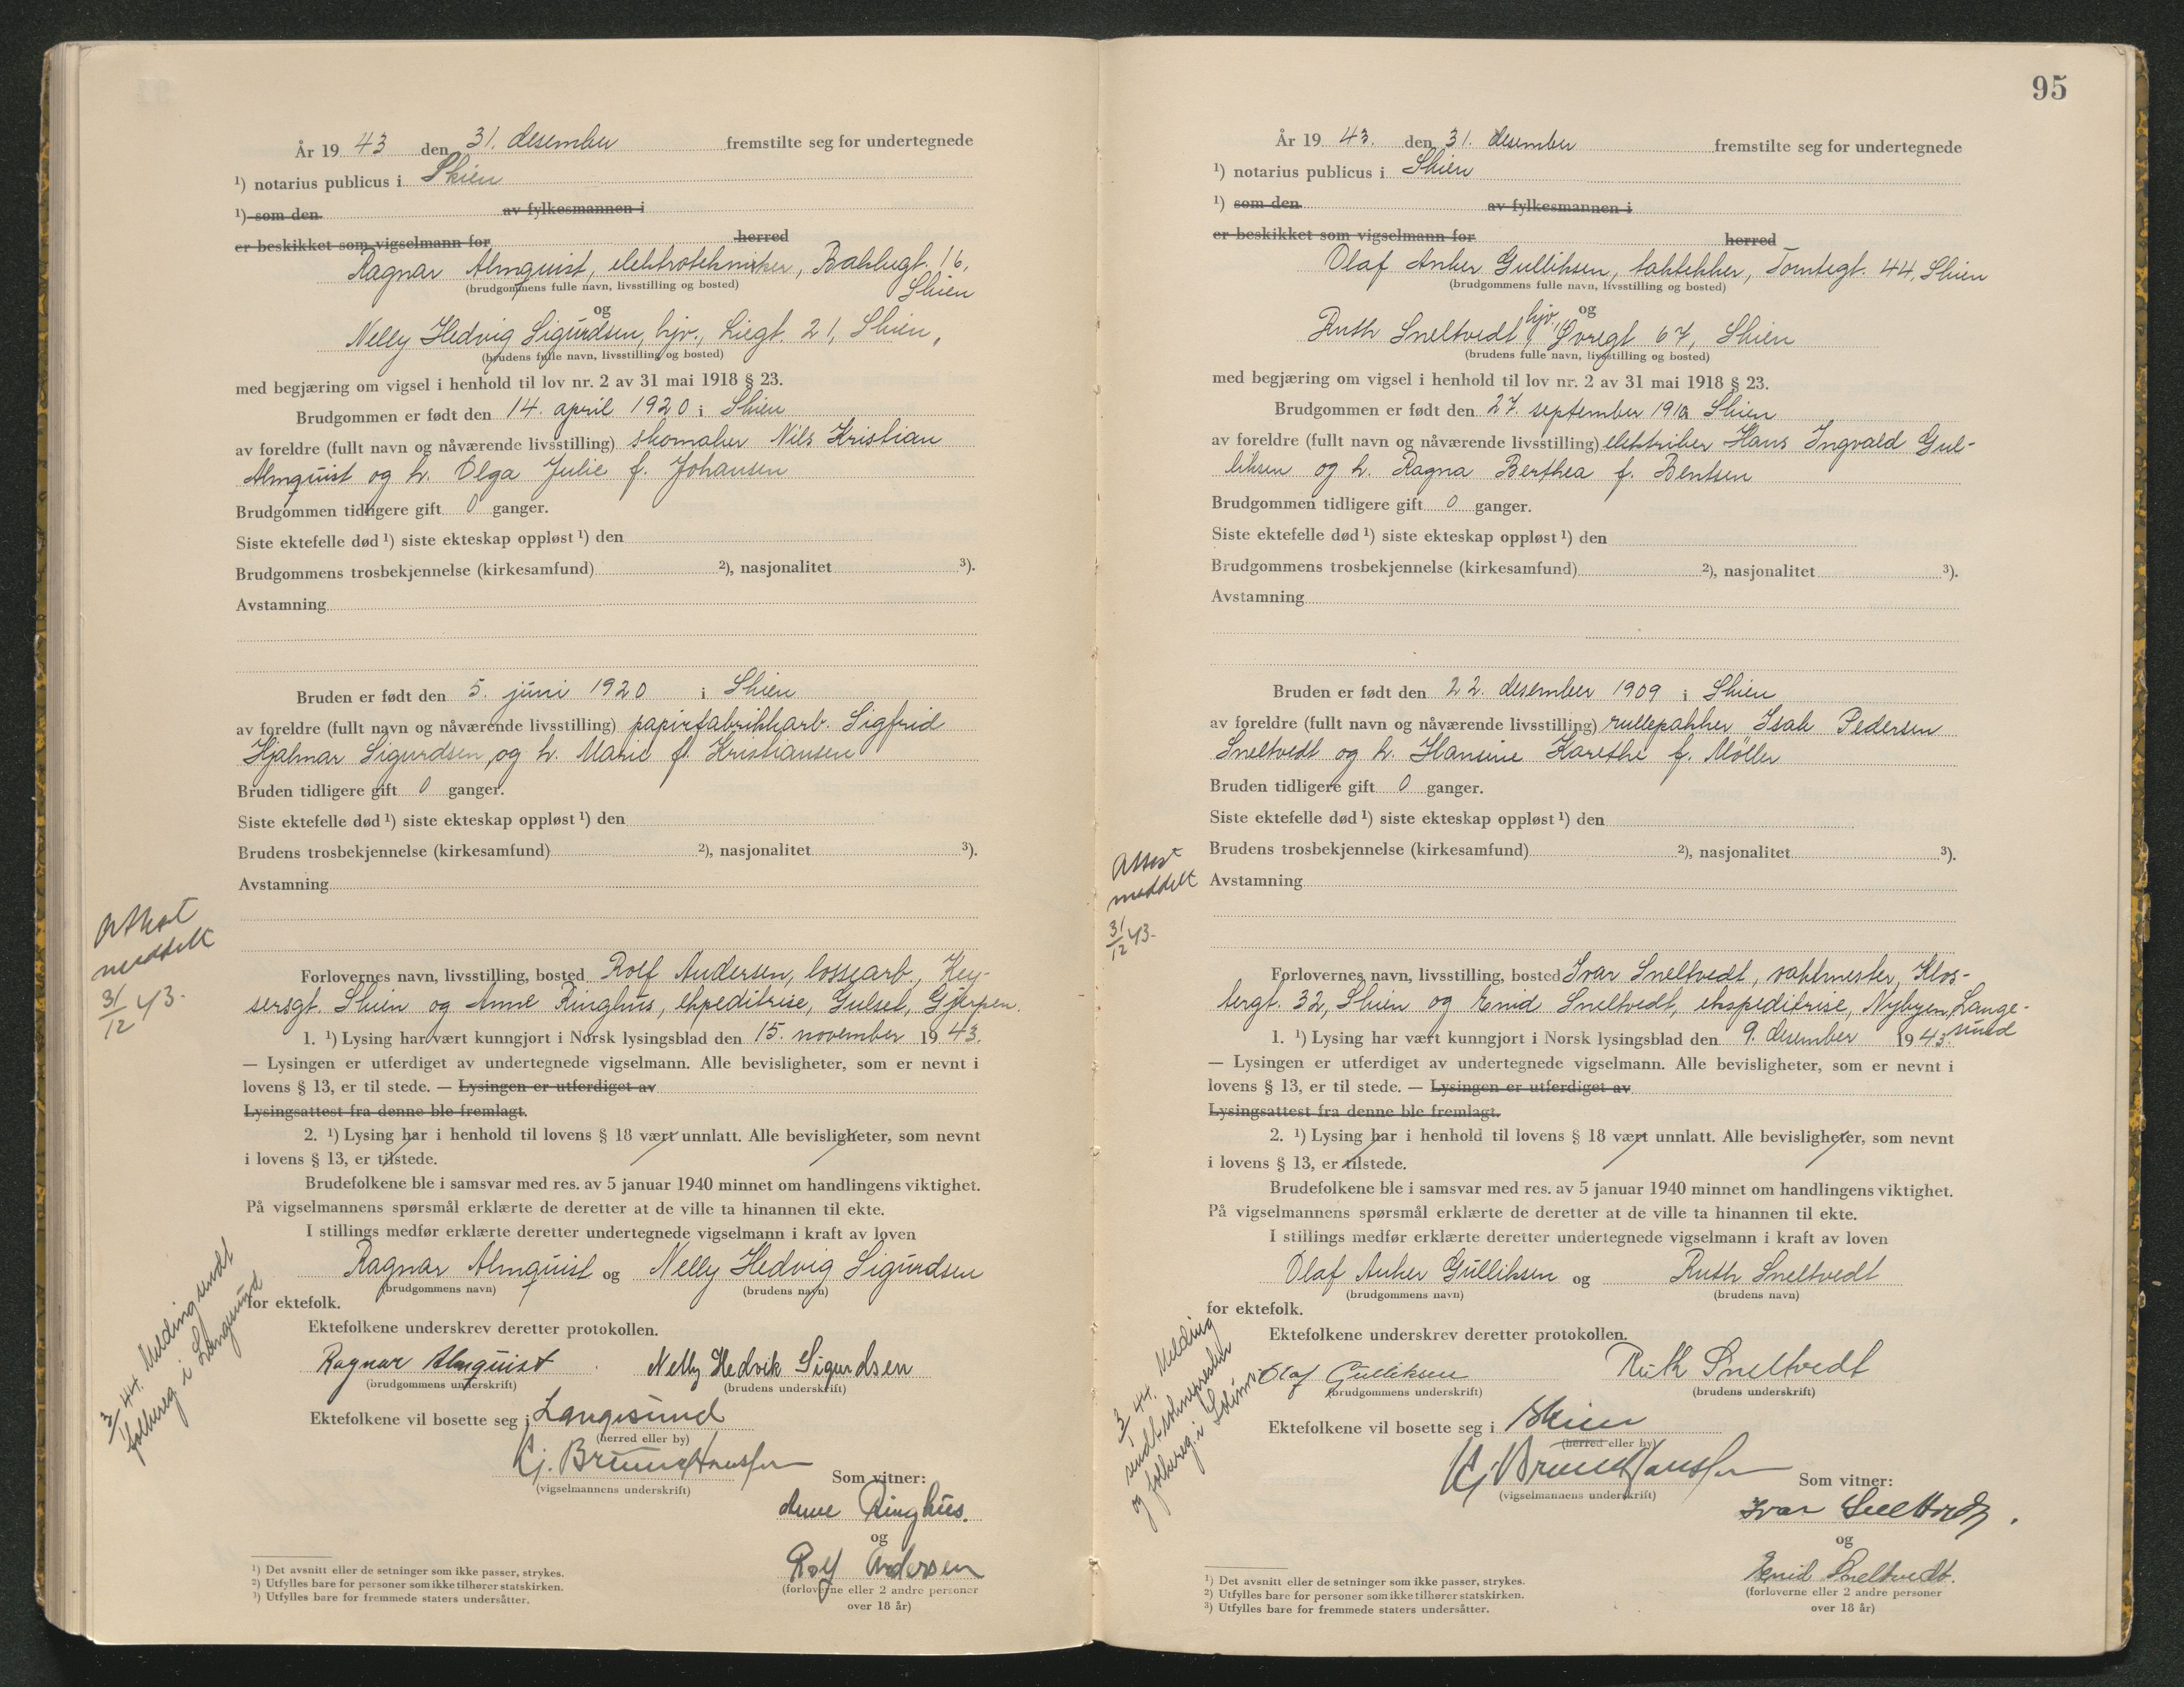 År 19 43 den 31. desember fremstilte seg for undertegnede
¹) notarius publicus i Skien
¹) som den av fylkesmannen i
er beskikket som vigselmann for herred
Ragnar Almquist, elektrotekniker, Bakkegt. 16,
Skien
(brudgommens fulle navn, livsstilling og bosted)
og
Nelly Hedvig Sigurdsen, hjv., Liegt. 21, Skien,
(brudens fulle navn, livsstilling og bosted)
med begjæring om vigsel i henhold til lov nr. 2 av 31 mai 1918 § 23.
Brudgommen er født den 14. april 1920 i Skien
av foreldre (fullt navn og nåværende livsstilling) skomaker Nils Kristian
Almquist og h. Olga Julie f. Johansen
Brudgommen tidligere gift 0 ganger.
Siste ektefelle død ¹) siste ekteskap oppløst ¹) den
Brudgommens trosbekjennelse (kirkesamfund) ²), nasjonalitet ³).
Avstamning
Bruden er født den 5. juni 1920 i Skien
av foreldre (fullt navn og nåværende livsstilling) papirfabrikkarb. Sigfrid
Hjalmar Sigurdsen og h. Marie f. Kristiansen
Bruden tidligere gift 0 ganger.
Siste ektefelle død ¹) siste ekteskap oppløst ¹) den
Brudens trosbekjennelse (kirkesamfund) ²), nasjonalitet ³).
Avstamning
Attest
meddelt
31/12 43.
Forlovernes navn, livsstilling, bosted Rolf Andersen, lossearb., Key-
sersgt. Skien og Anne Ringhus, ekpeditrise, Gulset, Gjerpen.
1. ¹) Lysing har vært kunngjort i Norsk lysingsblad den 15. november 19 43.
— Lysingen er utferdiget av undertegnede vigselmann. Alle bevisligheter, som er nevnt i
lovens § 13, er til stede. — Lysingen er utferdiget av
Lysingsattest fra denne ble fremlagt.
2. ¹) Lysing har i henhold til lovens § 18 vært unnlatt. Alle bevisligheter, som nevnt
i lovens § 13, er tilstede.
Brudefolkene ble i samsvar med res. av 5 januar 1940 minnet om handlingens viktighet.
På vigselmannens spørsmål erklærte de deretter at de ville ta hinannen til ekte.
I stillings medfør erklærte deretter undertegnede vigselmann i kraft av loven
Ragnar Almquist og Nelly Hedvig Sigurdsen
(brudgommens navn) (brudens navn)
for ektefolk.
Ektefolkene underskrev deretter protokollen.
Ragnar Almquist Nelly Hedvik Sigurdsen
(brudgommens underskrift) (brudens underskrift)
Ektefolkene vil bosette seg i Langesund
(herred eller by)
3/1 44. Melding sendt
folkereg i Langesund
Kj. Bruun Hansen
(vigselmannens underskrift)
Som vitner:
Anne Ringhus.
og
Rolf Andersen
(forloverne eller 2 andre personer
over 18 år)
¹) Det avsnitt eller de setninger som ikke passer, strykes.
²) Utfylles bare for personer som ikke tilhører statskirken.
³) Utfylles bare for fremmede staters undersåtter.
95
År 19 43. den 31. desember fremstilte seg for undertegnede
¹) notarius publicus i Skien
¹) som den av fylkesmannen i
er beskikket som vigselmann for herred
Olaf Anker Gulliksen, taktekker, Tomtegt. 44, Skien
(brudgommens fulle navn, livsstilling og bosted)
og
Ruth Sneltvedt, hjv., Øvregt 67, Skien
(brudens fulle navn, livsstilling og bosted)
med begjæring om vigsel i henhold til lov nr. 2 av 31 mai 1918 § 23.
Brudgommen er født den 27. september 191 Skien
av foreldre (fullt navn og nåværende livsstilling) elektriker Hans Ingvald Gul-
liksen og h. Ragna Berthea f. Bentsen
Brudgommen tidligere gift 0 ganger.
Siste ektefelle død ¹) siste ekteskap oppløst ¹) den
Brudgommens trosbekjennelse (kirkesamfund) ²), nasjonalitet ³).
Avstamning
Bruden er født den 22. desember 1909 i Skien
av foreldre (fullt navn og nåværende livsstilling) rullepakker Isak Pedersen
Sneltvedt og h. Hansine Karethe f. Møller
Bruden tidligere gift 0 ganger.
Siste ektefelle død ¹) siste ekteskap oppløst ¹) den
Brudens trosbekjennelse (kirkesamfund) ²), nasjonalitet ³).
Avstamning
Attest
meddelt
31/12 43.
Forlovernes navn, livsstilling, bosted Ivar Sneltvedt, vaktmester, Klos-
tergt. 32, Skien og Enid Sneltvedt, ekspeditrise, Nybyen, Lange-
sund
1. ¹) Lysing har vært kunngjort i Norsk lysingsblad den 9. desember 19 43.
— Lysingen er utferdiget av undertegnede vigselmann. Alle bevisligheter, som er nevnt i
lovens § 13, er til stede. — Lysingen er utferdiget av
Lysingsattest fra denne ble fremlagt.
2. ¹) Lysing har i henhold til lovens § 18 vært unnlatt. Alle bevisligheter, som nevnt
i lovens § 13, er tilstede.
Brudefolkene ble i samsvar med res. av 5 januar 1940 minnet om handlingens viktighet.
På vigselmannens spørsmål erklærte de deretter at de ville ta hinannen til ekte.
I stillings medfør erklærte deretter undertegnede vigselmann i kraft av loven
Olaf Anker Gulliksen og Ruth Sneltvedt
(brudgommens navn) (brudens navn)
for ektefolk.
Ektefolkene underskrev deretter protokollen.
Olaf Gulliksen Ruth Sneltvedt
(brudgommens underskrift) (brudens underskrift)
Ektefolkene vil bosette seg i Skien
(herred eller by)
3/1 44. Melding
sendt soknepresten
og folkereg. i Solum
Kj. Bruun Hansen
(vigselmannens underskrift)
Som vitner:
Ivar Sneltvedt.
og
Enid Sneltvedt.
(forloverne eller 2 andre personer
over 18 år)
¹) Det avsnitt eller de setninger som ikke passer, strykes.
²) Utfylles bare for personer som ikke tilhører statskirken.
³) Utfylles bare for fremmede staters undersåtter.